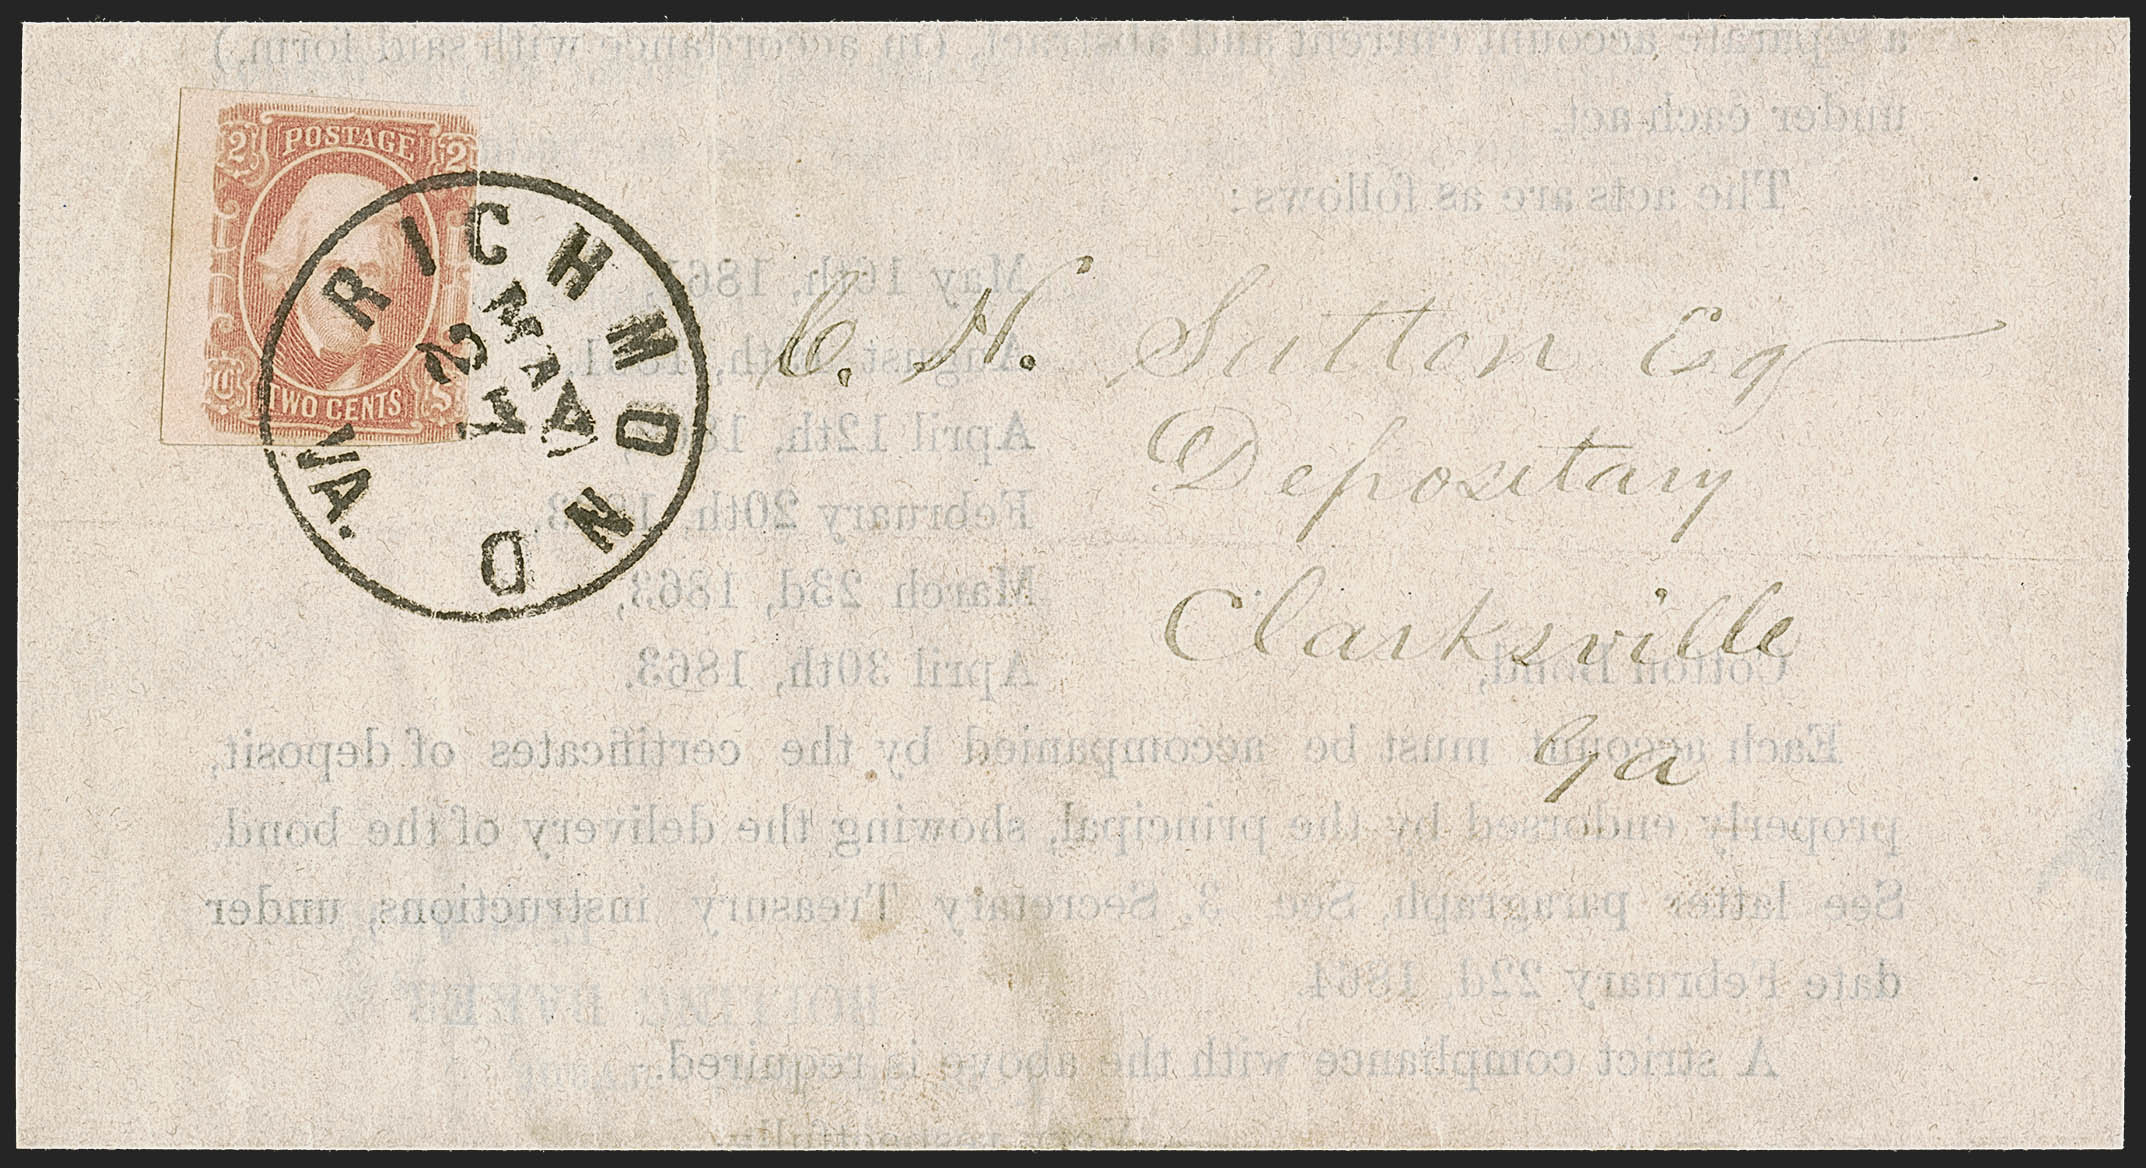 2 POSTAGE 2
TWO CENTS
RICHMOND
VA.
MAY
C. H. Sutton Esq
Depositary
Clarksville
Ga
a separate account current and abstract, (in accordance with said form,)
under each act.
The acts are as follows:
May 16th, 1861,
August 19th, 1861,
April 12th,
February 20th, 1863,
March 23d, 1863,
Cotton Bond, April 30th, 1863.
Each account must be accompanied by the certificates of deposit,
properly endorsed by the principal, showing the delivery of the bond.
See latter paragraph, Sec 3, Secretary Treasury instructions, under
date February 22d, 1864.
A strict compliance with the above is required.
Very respectfully,